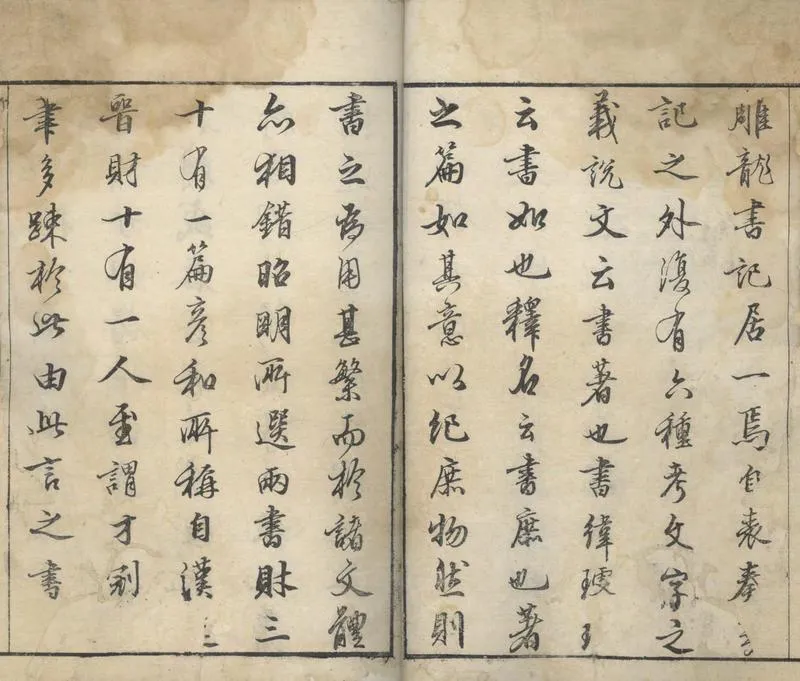 雕龍書記居一焉自表奏
記之外復有六種考文字之
義說文云書著也書緯璇
云書如也釋名云書庶也著
之篇如其意以紀庶物然則
書之為用甚繁而於諸文體
亦相錯昭明所選兩書財三
十有一篇彥和所稱自漢
晉財十有一人至謂才
筆多踈於此由此言之書